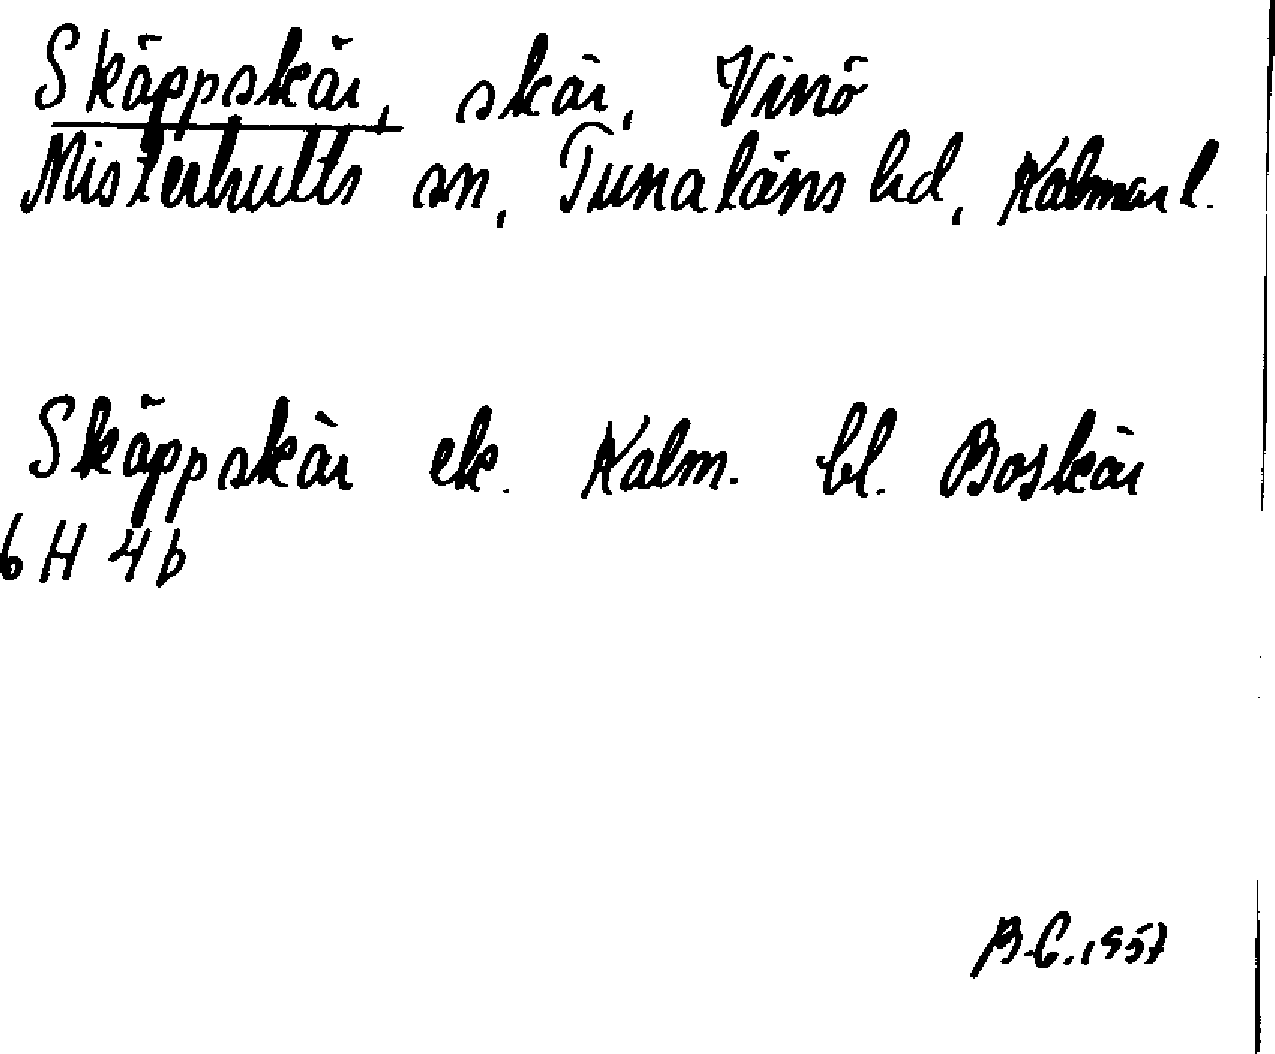 Skäppskär, skär, Vinö
Misterhults sn, Tunaläns hd, Kalmar l.
Skäppskär ek. Kalm. bl. Boskär
6 H 4 b
B-C. 1957